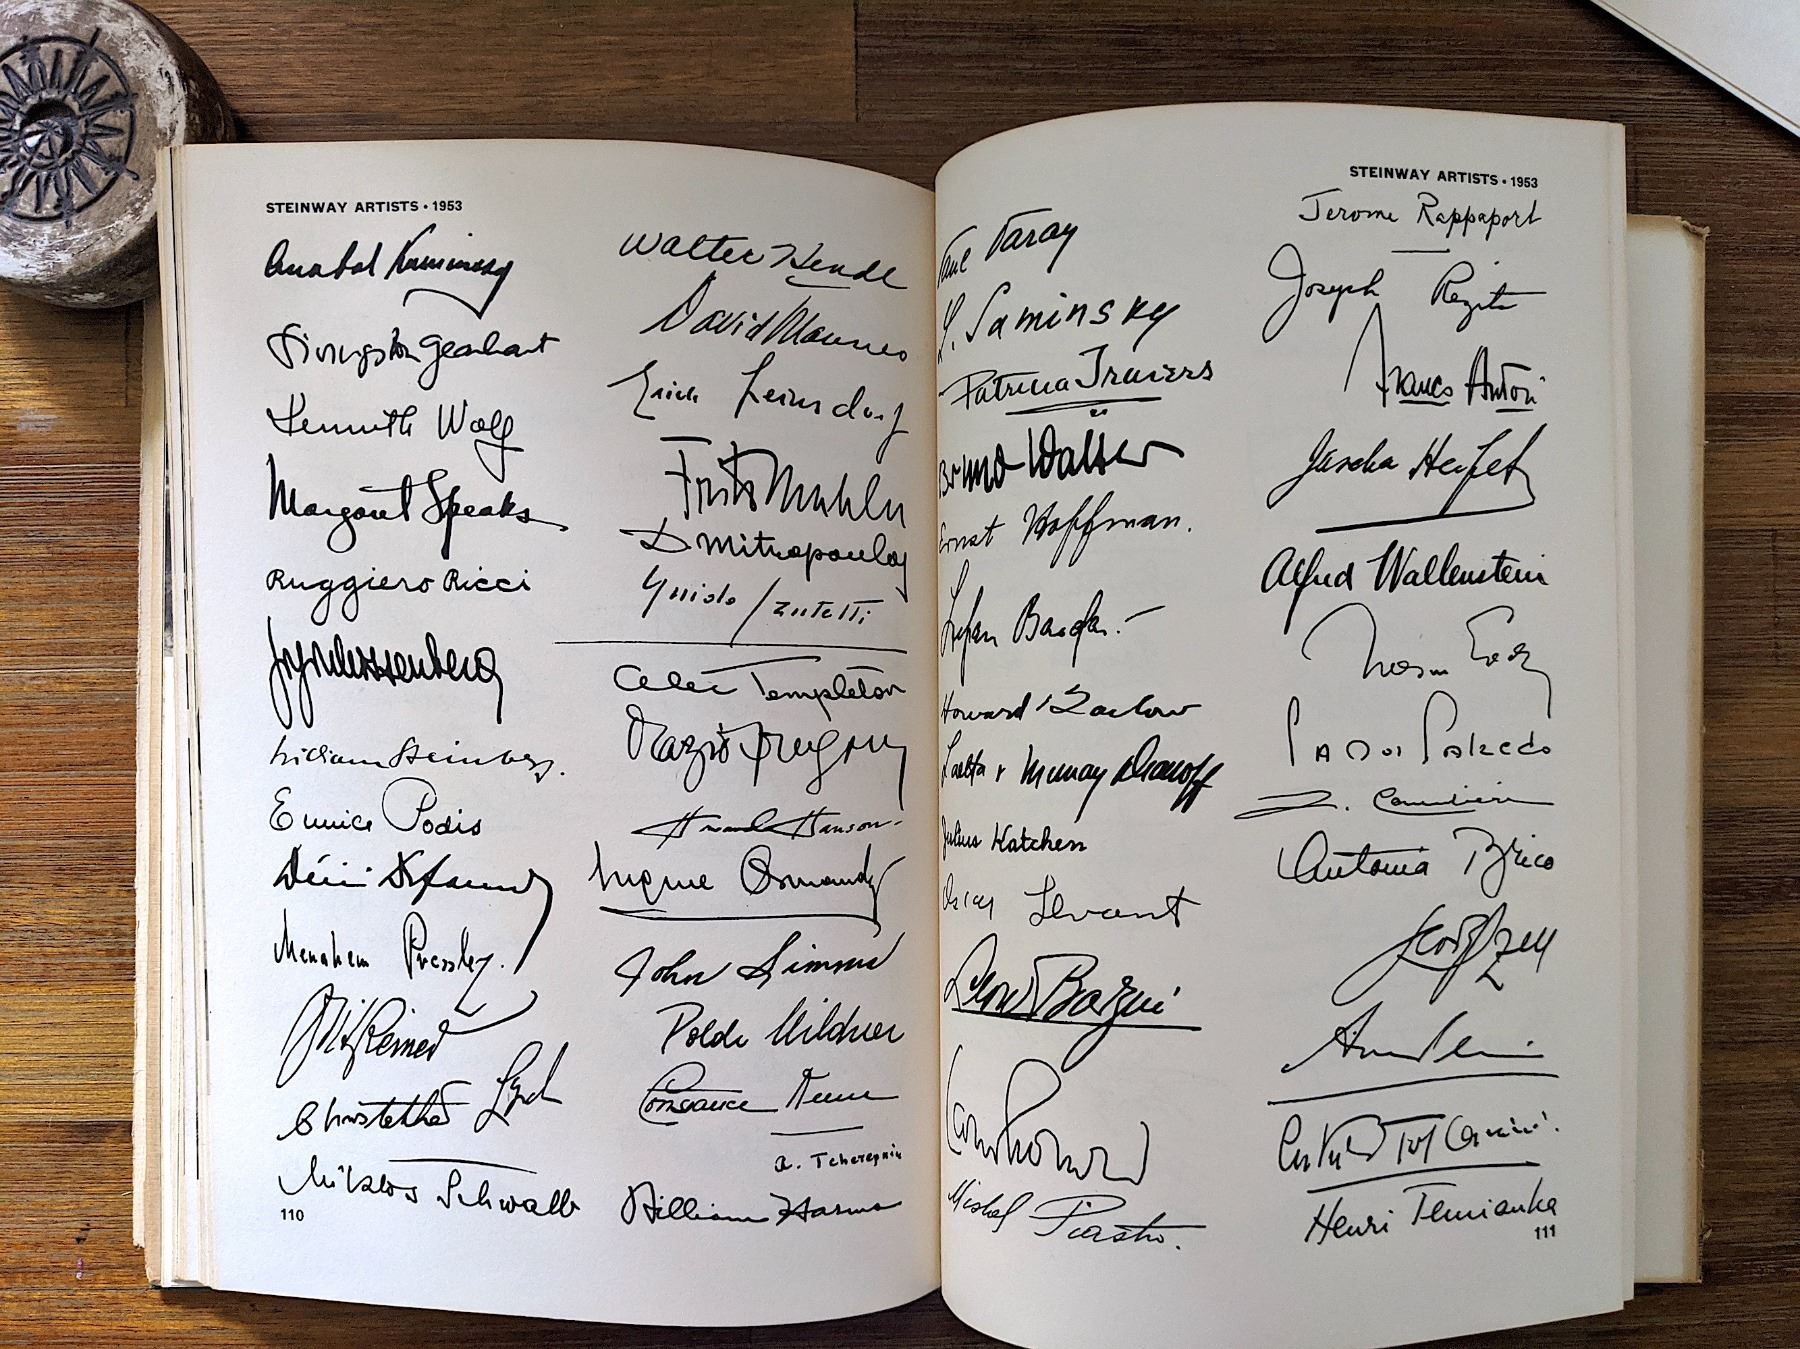 STEINWAY ARTISTS • 1953
Anatol Kaminsky
Livingston Gearhart
Kenneth Wolf
Margaret Speaks
Ruggiero Ricci
William Steinberg.
Eunice Podis
Menahem Pressler.
Fritz Reiner
Christopher Lynch
Miklos Schwalb
110
Walter Hendl
David Mannes
Erich Leinsdorf
Fritz Mahler
D Mitropoulos
Guido Cantelli
Alec Templeton
Orazio Frugoni
Howard Hanson
Eugene Ormandy
John Simms
Poldi Mildner
Constance Keene
A. Tcherepnin
William Harms
STEINWAY ARTISTS • 1953
Paul Paray
L. Saminsky
Patricia Travers
Bruno Walter
Ernst Hoffman.
Howard Barlow
Loretta & Murray Dranoff
Julius Katchen
Oscar Levant
Leon Barzin
Mishel Piastro.
Jerome Rappaport
Joseph Rezits
Franco Autori
Jascha Heifetz
Alfred Wallenstein
Antonia Brico
Georg Szell
Henri Temianka
111